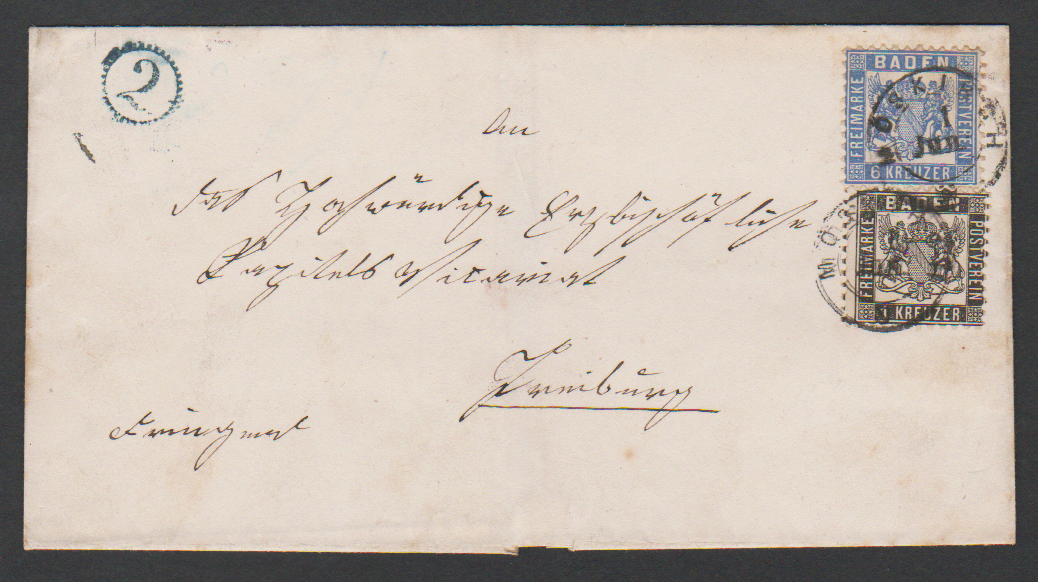 2
BADEN
FREIMARKE
POSTVEREIN
6 KREUZER
MÖSKIRCH
1
Jun
An
das Hochwürdige Erzbischöfliche
Kapitels Vicariat
Freiburg
BADEN
FREIMARKE
POSTVEREIN
1 KREUZER